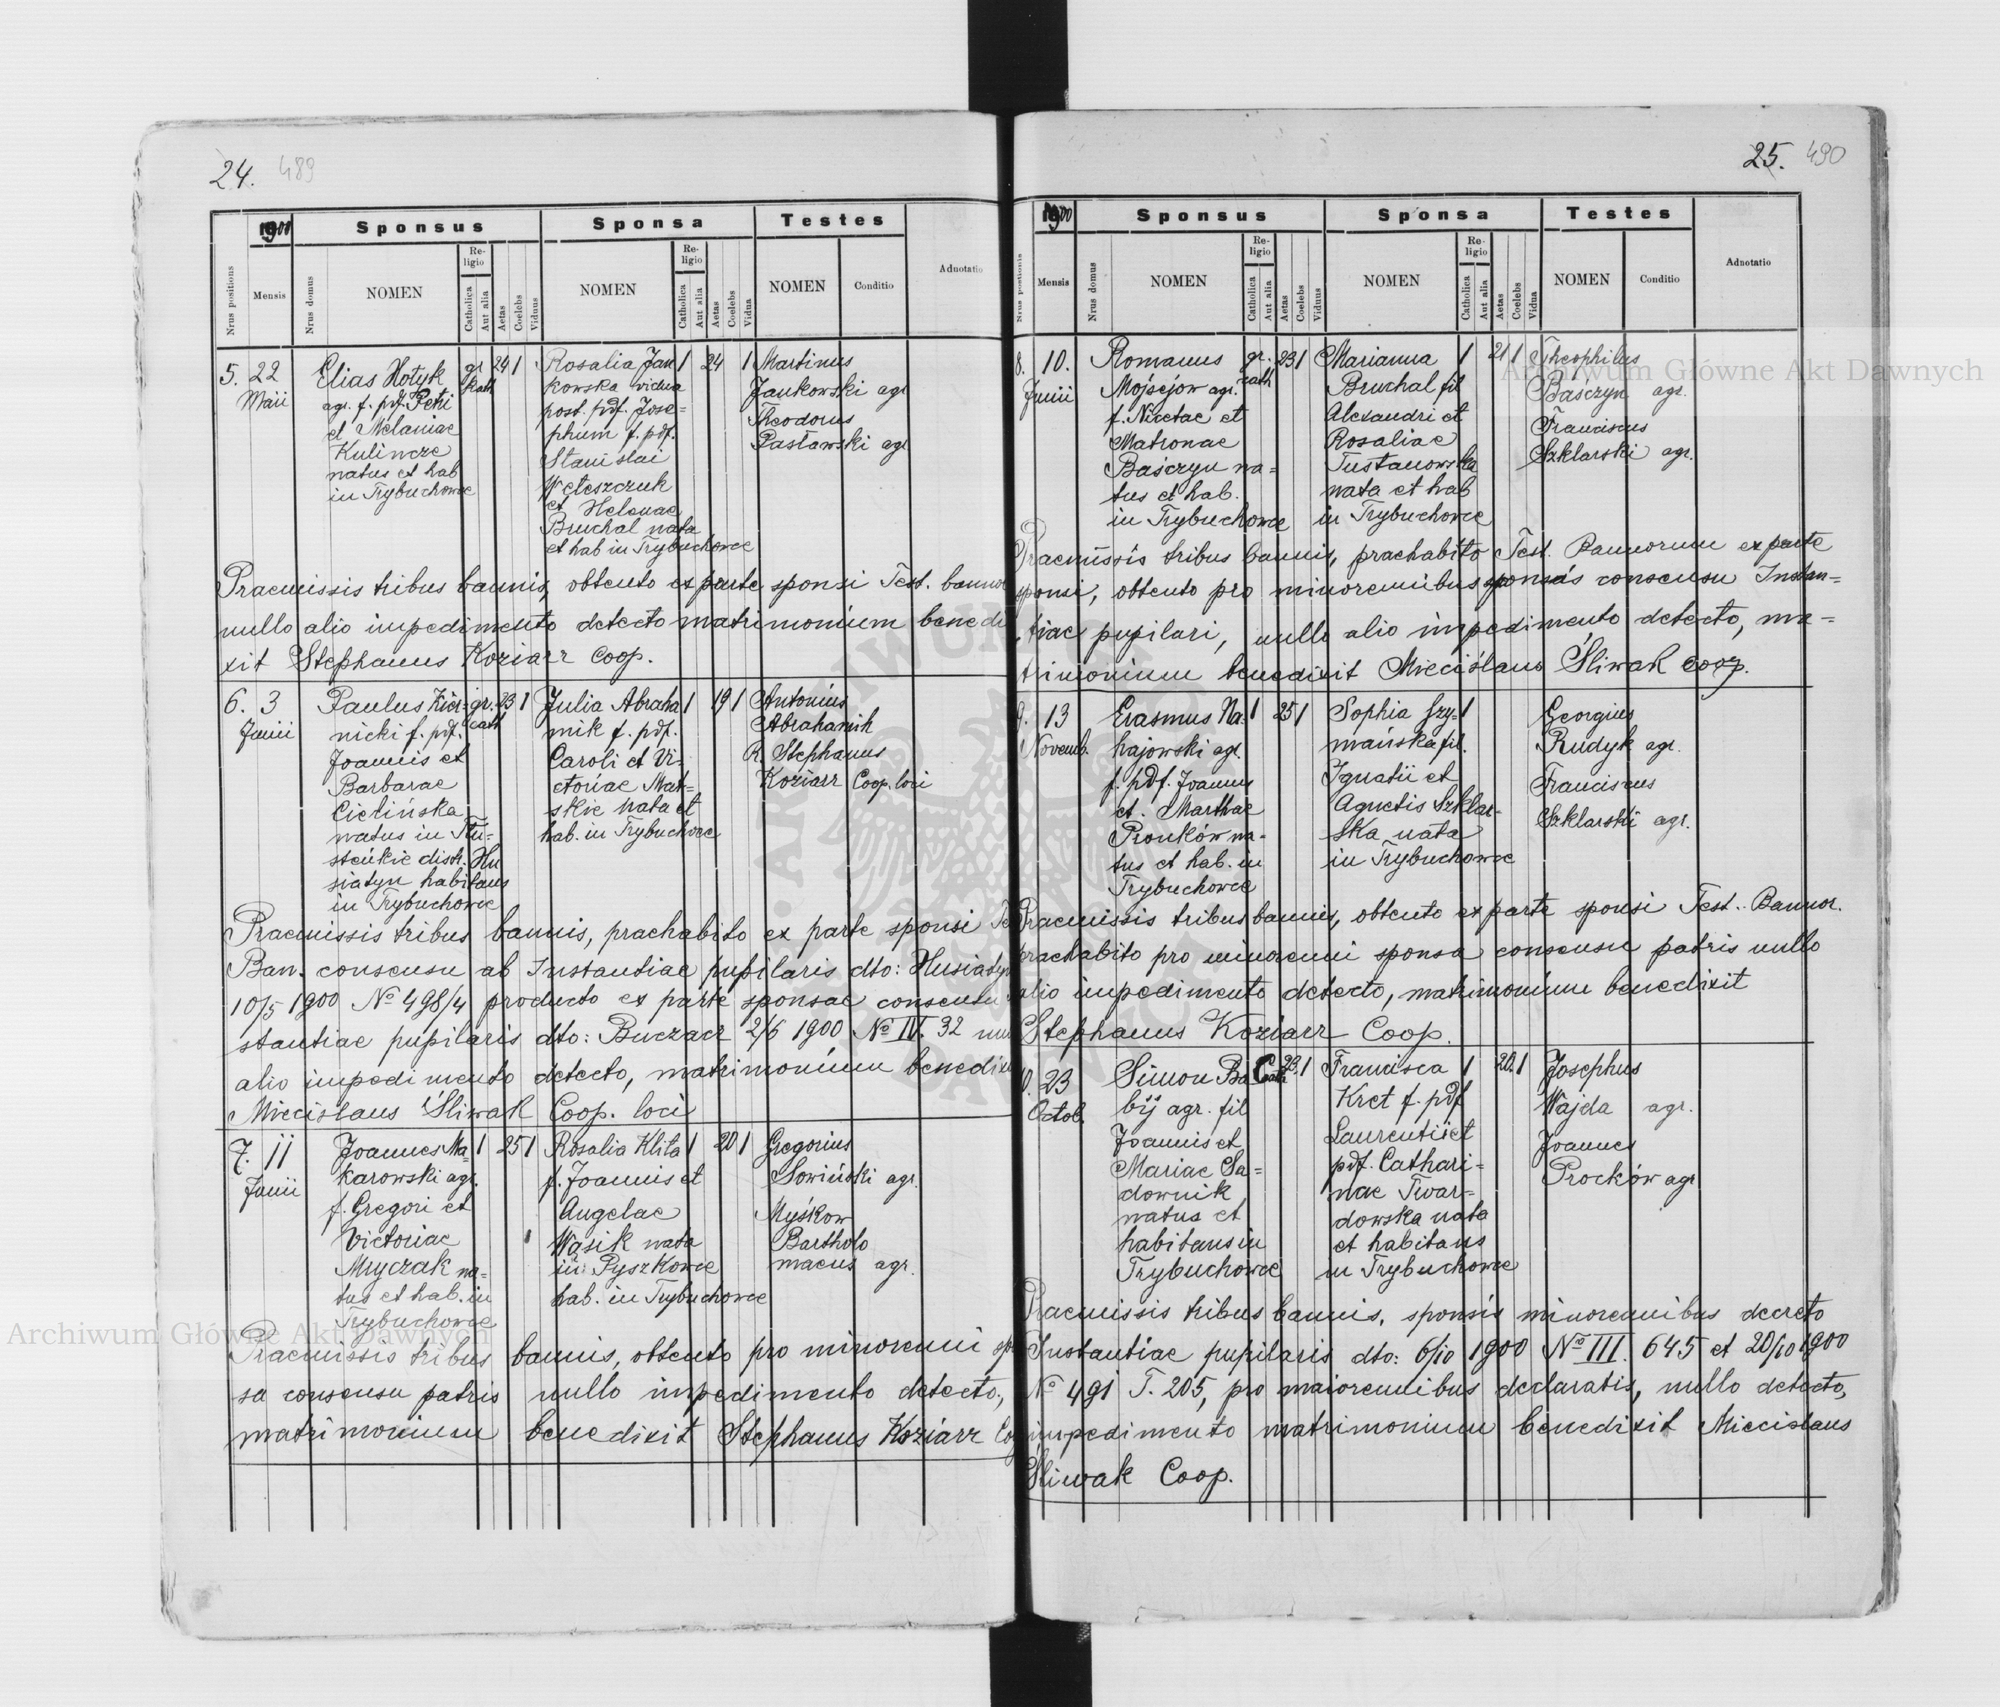 24. 489
1900
Sponsus
Sponsa
Testes
Adnotatio
Nrus positions
Mensis
Nrus domus
NOMEN
Religio
Catholica
Aut alia
Aetas
Coelebs
Viduus
NOMEN
Religio
Catholica
Aut alia
Aetas
Coelebs
Vidua
NOMEN
Conditio
5. 22
Maii
Elias Hotyk
agr. f. pdf. Petri
et Melaniae
Kulincze
natus et hab
in Trybuchowce
gr.
kath
24 1
Rosalia Jan
kowska vidua
post. pdf. Jose=
phum f. pdf.
Stanislai
Weteszczuk
et Helenae
Bruchal nata
et hab in Trybuchowce
1 24 1
Martinus
Jankowski agr
Theodorus
Pasławski agr
Praemissis tribus bannis, obtento ex parte sponsi Test. bannor
nullo alio impedimento detecto matrimonium benedi
xit Stephanus Koziarz Coop.
6. 3
Junii
Paulus
nicki f. pdf.
Joannis et
Barbarae
Cielińska
natus in Tłu-
steńkie distr. Hu
siatyn habitans
in Trybuchowce
gr.
cath
23 1
Julia Abraha
mik f. pdf.
Caroli et Vi-
ctoriae
nata et
hab. in Trybuchowce
1 19 1
Antonius
Abrahamik
R. Stephanus
Koziarz Coop. loci
Praemissis tribus bannis, praehabito ex parte sponsi
Ban. consensu ab Instantiae pupilaris dto: Husiatyn
10/5 1900 No 498/4 producto ex parte sponsae consensu
stantiae pupilaris dto: Buczacz 2/6 1900 No IV. 32
alio impedimento detecto, matrimonium benedixit
Miecislaus Śliwak Coop. loci
7. 11
Junii
Joannes Ma=
karowski agr.
f. Gregori et
Victoriae
Mryczak na=
tus et hab. in
Trybuchowce
1 25 1
Rosalia Klita
f. Joannis et
Angelae
Wąsik nata
in Pyszkowce
hab. in Trybuchowce
1 20 1
Gregorius
Sowiński agr.
Myśkow
Bartholo
maeus agr.
Praemissis tribus bannis, obtento pro minorenni spon
sa consensu patris nullo impedimento detecto,
matrimonium benedixit Stephanus Koziarz Coop
25. 490
1900
Sponsus
Sponsa
Testes
Adnotatio
Nrus positionis
Mensis
Nrus domus
NOMEN
Religio
Catholica
Aut alia
Aetas
Coelebs
Viduus
NOMEN
Religio
Catholica
Aut alia
Aetas
Coelebs
Vidua
NOMEN
Conditio
8. 10.
Junii
Romanus
Mojsejow agr.
f. Nicetae et
Matronae
Baśczyn na=
tus et hab.
in Trybuchowce
gr.
cath
23 1
Marianna
Bruchal fil
Alexandri et
Rosaliae
Tustanowska
nata et hab
in Trybuchowce
1 21 1
Theophilus
Baśczyn agr.
Franciscus
Szklarski agr.
Praemissis tribus bannis, praehabito Test. Bannorum ex parte
sponsi, obtento pro minorennibus sponsis consensu Instan=
tiae pupilari, nullo alio impedimento detecto, ma=
trimonium benedixit Miecislaus Śliwak Coop.
9. 13
Novemb.
Erasmus Na=
hajowski agr.
f. pdf. Joannis
et Marthae
Pronków na-
tus et hab. in
Trybuchowce
1 25 1
Sophia Szy=
mańska fil.
Ignatii et
Agnetis Szklar-
ska nata
in Trybuchowce
1
Georgius
Rudyk agr.
Franciscus
Szklarski agr.
Praemissis tribus bannis, obtento ex parte sponsi Test. Bannor.
praehabito pro minorenni sponsa consensu patris nullo
alio impedimento detecto, matrimonium benedixit
Stephanus Koziarz Coop.
10. 23
Octob.
Simon Ba
bij agr. fil
Joannis et
Mariae Sa=
downik
natus et
habitans in
Trybuchowce
Cath
23. 1
Francisca
Kret f. pdf
Laurentii et
pdf. Cathari=
nae Twar=
dowska nata
et habitans
in Trybuchowce
1 20. 1
Josephus
Wajda agr.
Joannes
Proćków agr
Praemissis tribus bannis, sponsis minorennibus decreto
Instantiae pupilaris dto: 6/10 1900 No III. 645 et 20/10 1900
No 491 T. 205, pro maiorennibus declaratis, nullo detecto,
impedimento matrimonium benedixit Miecislaus
Śliwak Coop.
Archiwum Główne Akt Dawnych
Archiwum Główne Akt Dawnych